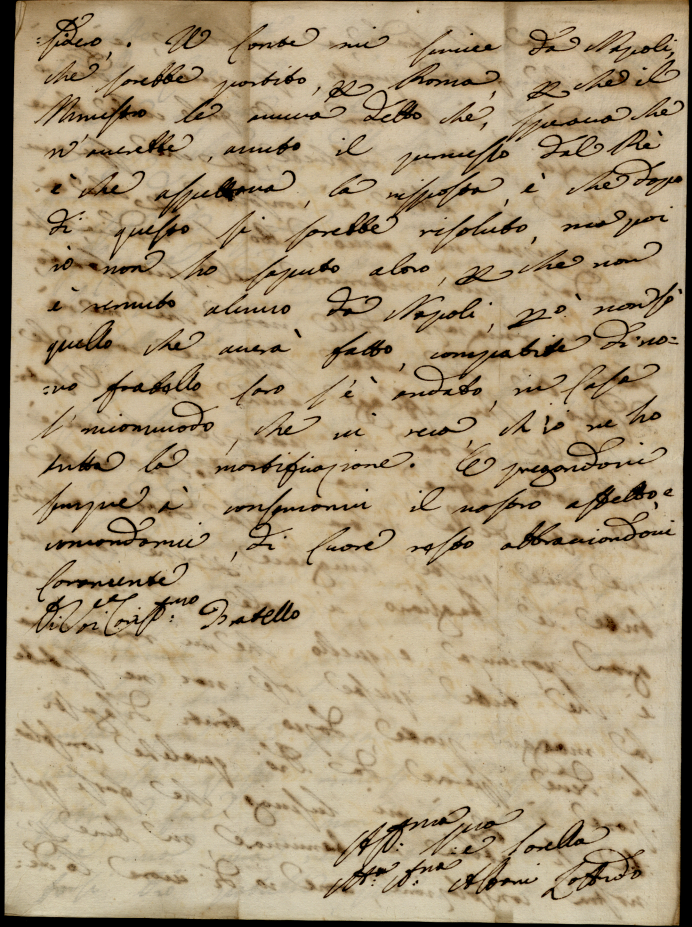 =sidero. Il Conte mi scrisse da Napoli,
che sarebbe partito, p Roma, p che il
Ministro le aveva detto che, sperava che
n'averebbe, avuto il permesso dal Rè
e che aspettava, la risposta, e che dopo
di questo si sarebbe risoluto, ma poi
io non ho saputo altro, p che non
è venuto alcuno da Napoli, però non sò
quello che averà fatto, compatite di no=
=vo fratello caro s'è andato, in Casa
l'incommodo, che vi reca, ch'io ne ho
tutta la mortificazione. E pregandovi
sempre à conservarmi il vostro affetto, e
comandarmi, di Cuore resto abbracciandovi
Caramente
Di Voi Cariss:mo Fratello
Aff:ma
e Sorella
Albani